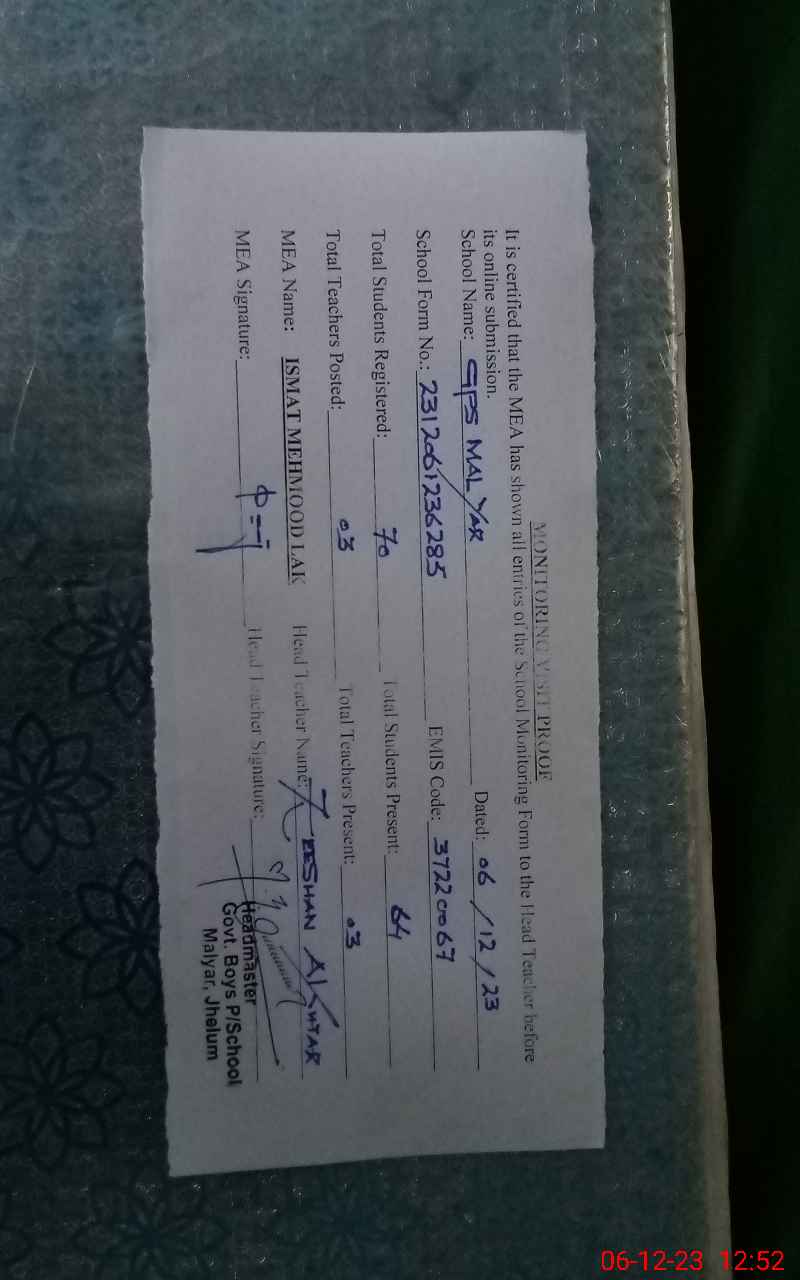 MONITORING VISIT PROOF
It is certified that the MEA has shown all entries of the School Monitoring Form to the Head Teacher before
its online submission.
School Name: GPS MALYAR Dated: 06/12/23
School Form No.: 2312061236285 EMIS Code: 37220067
Total Students Registered: 70 Total Students Present: 64
Total Teachers Posted: 03 Total Teachers Present: 03
MEA Name: ISMAT MEHMOOD LAK Head Teacher Name: ZEESHAN AKHTAR
MEA Signature: Head Teacher Signature:
Headmaster
Govt. Boys P/School
Malyar, Jhelum
06-12-23 12:52